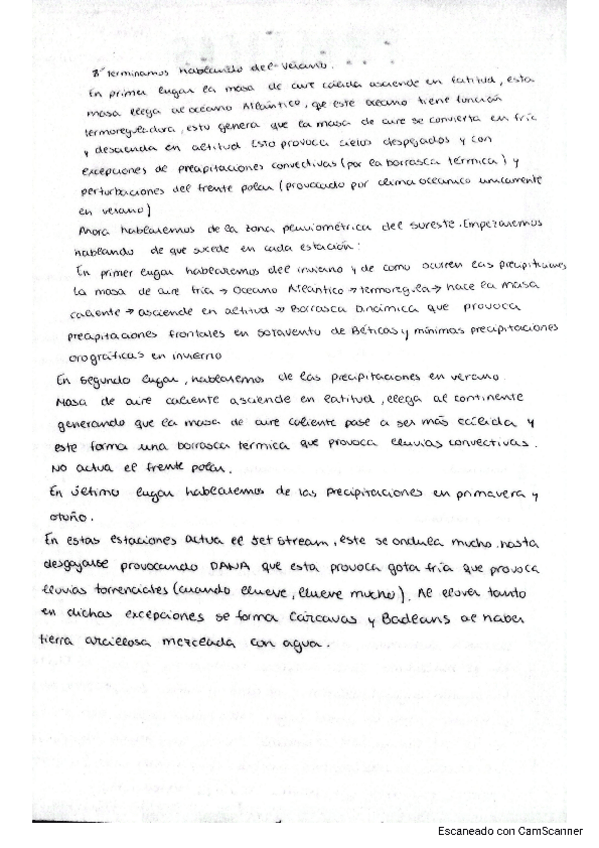 Y terminamos hablando del verano.
En primer lugar la masa de aire cálida asciende en latitud, esta
masa llega al océano Atlántico, que este océano tiene función
termoreguladora, esto genera que la masa de aire se convierta en fría
y descienda en altitud. Esto provoca cielos despejados y con
excepciones de precipitaciones convectivas (por la borrasca térmica) y
perturbaciones del frente polar (provocado por clima oceánico unicamente
en verano)
Ahora hablaremos de la zona pluviométrica del sureste. Empezaremos
hablando de que sucede en cada estación:
En primer lugar hablaremos del invierno y de como ocurren las precipitaciones
la masa de aire fría → Oceano Atlantico → termoregula → hace la masa
caliente → asciende en altitud → Borrasca dinámica que provoca
precipitaciones frontales en sotavento de Béticas y mínimas precipitaciones
orográficas en invierno
En segundo lugar, hablaremos de las precipitaciones en verano.
Masa de aire caliente asciende en latitud, llega al continente
generando que la masa de aire caliente pase a ser más cálida y
este forma una borrasca termica que provoca lluvias convectivas.
No actua el frente polar.
En último lugar hablaremos de las precipitaciones en primavera y
otoño.
En estas estaciones actua el Jet Stream, este se ondula mucho hasta
desgajarse provocando DANA que esta provoca gota fría que provoca
lluvias torrenciales (cuando llueve, llueve mucho). Al llover tanto
en dichas excepciones se forma Cárcavas y Badlans al haber
tierra arcillosa mezclada con agua.
Escaneado con CamScanner